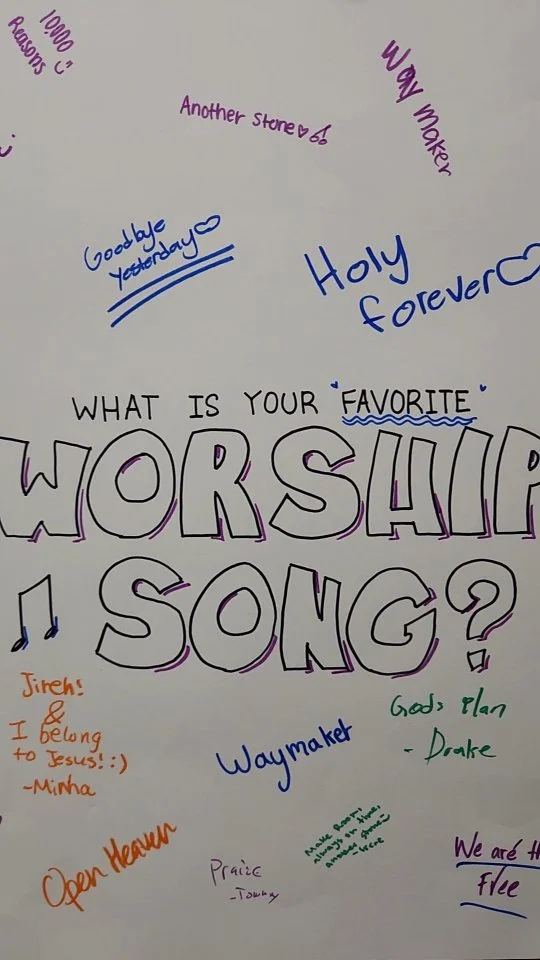 10000
Reasons
Another stone
Way maker
Goodbye
Yesterday
Holy
forever
WHAT IS YOUR "FAVORITE"
WORSHIP
SONG?
Jireh!
&
I belong
to Jesus! :)
-Minha
Gods Plan
- Drake
Waymaker
Open Heaven
Praise
-Tommy
Make Room!
always on time,
another stone
We are th
Free